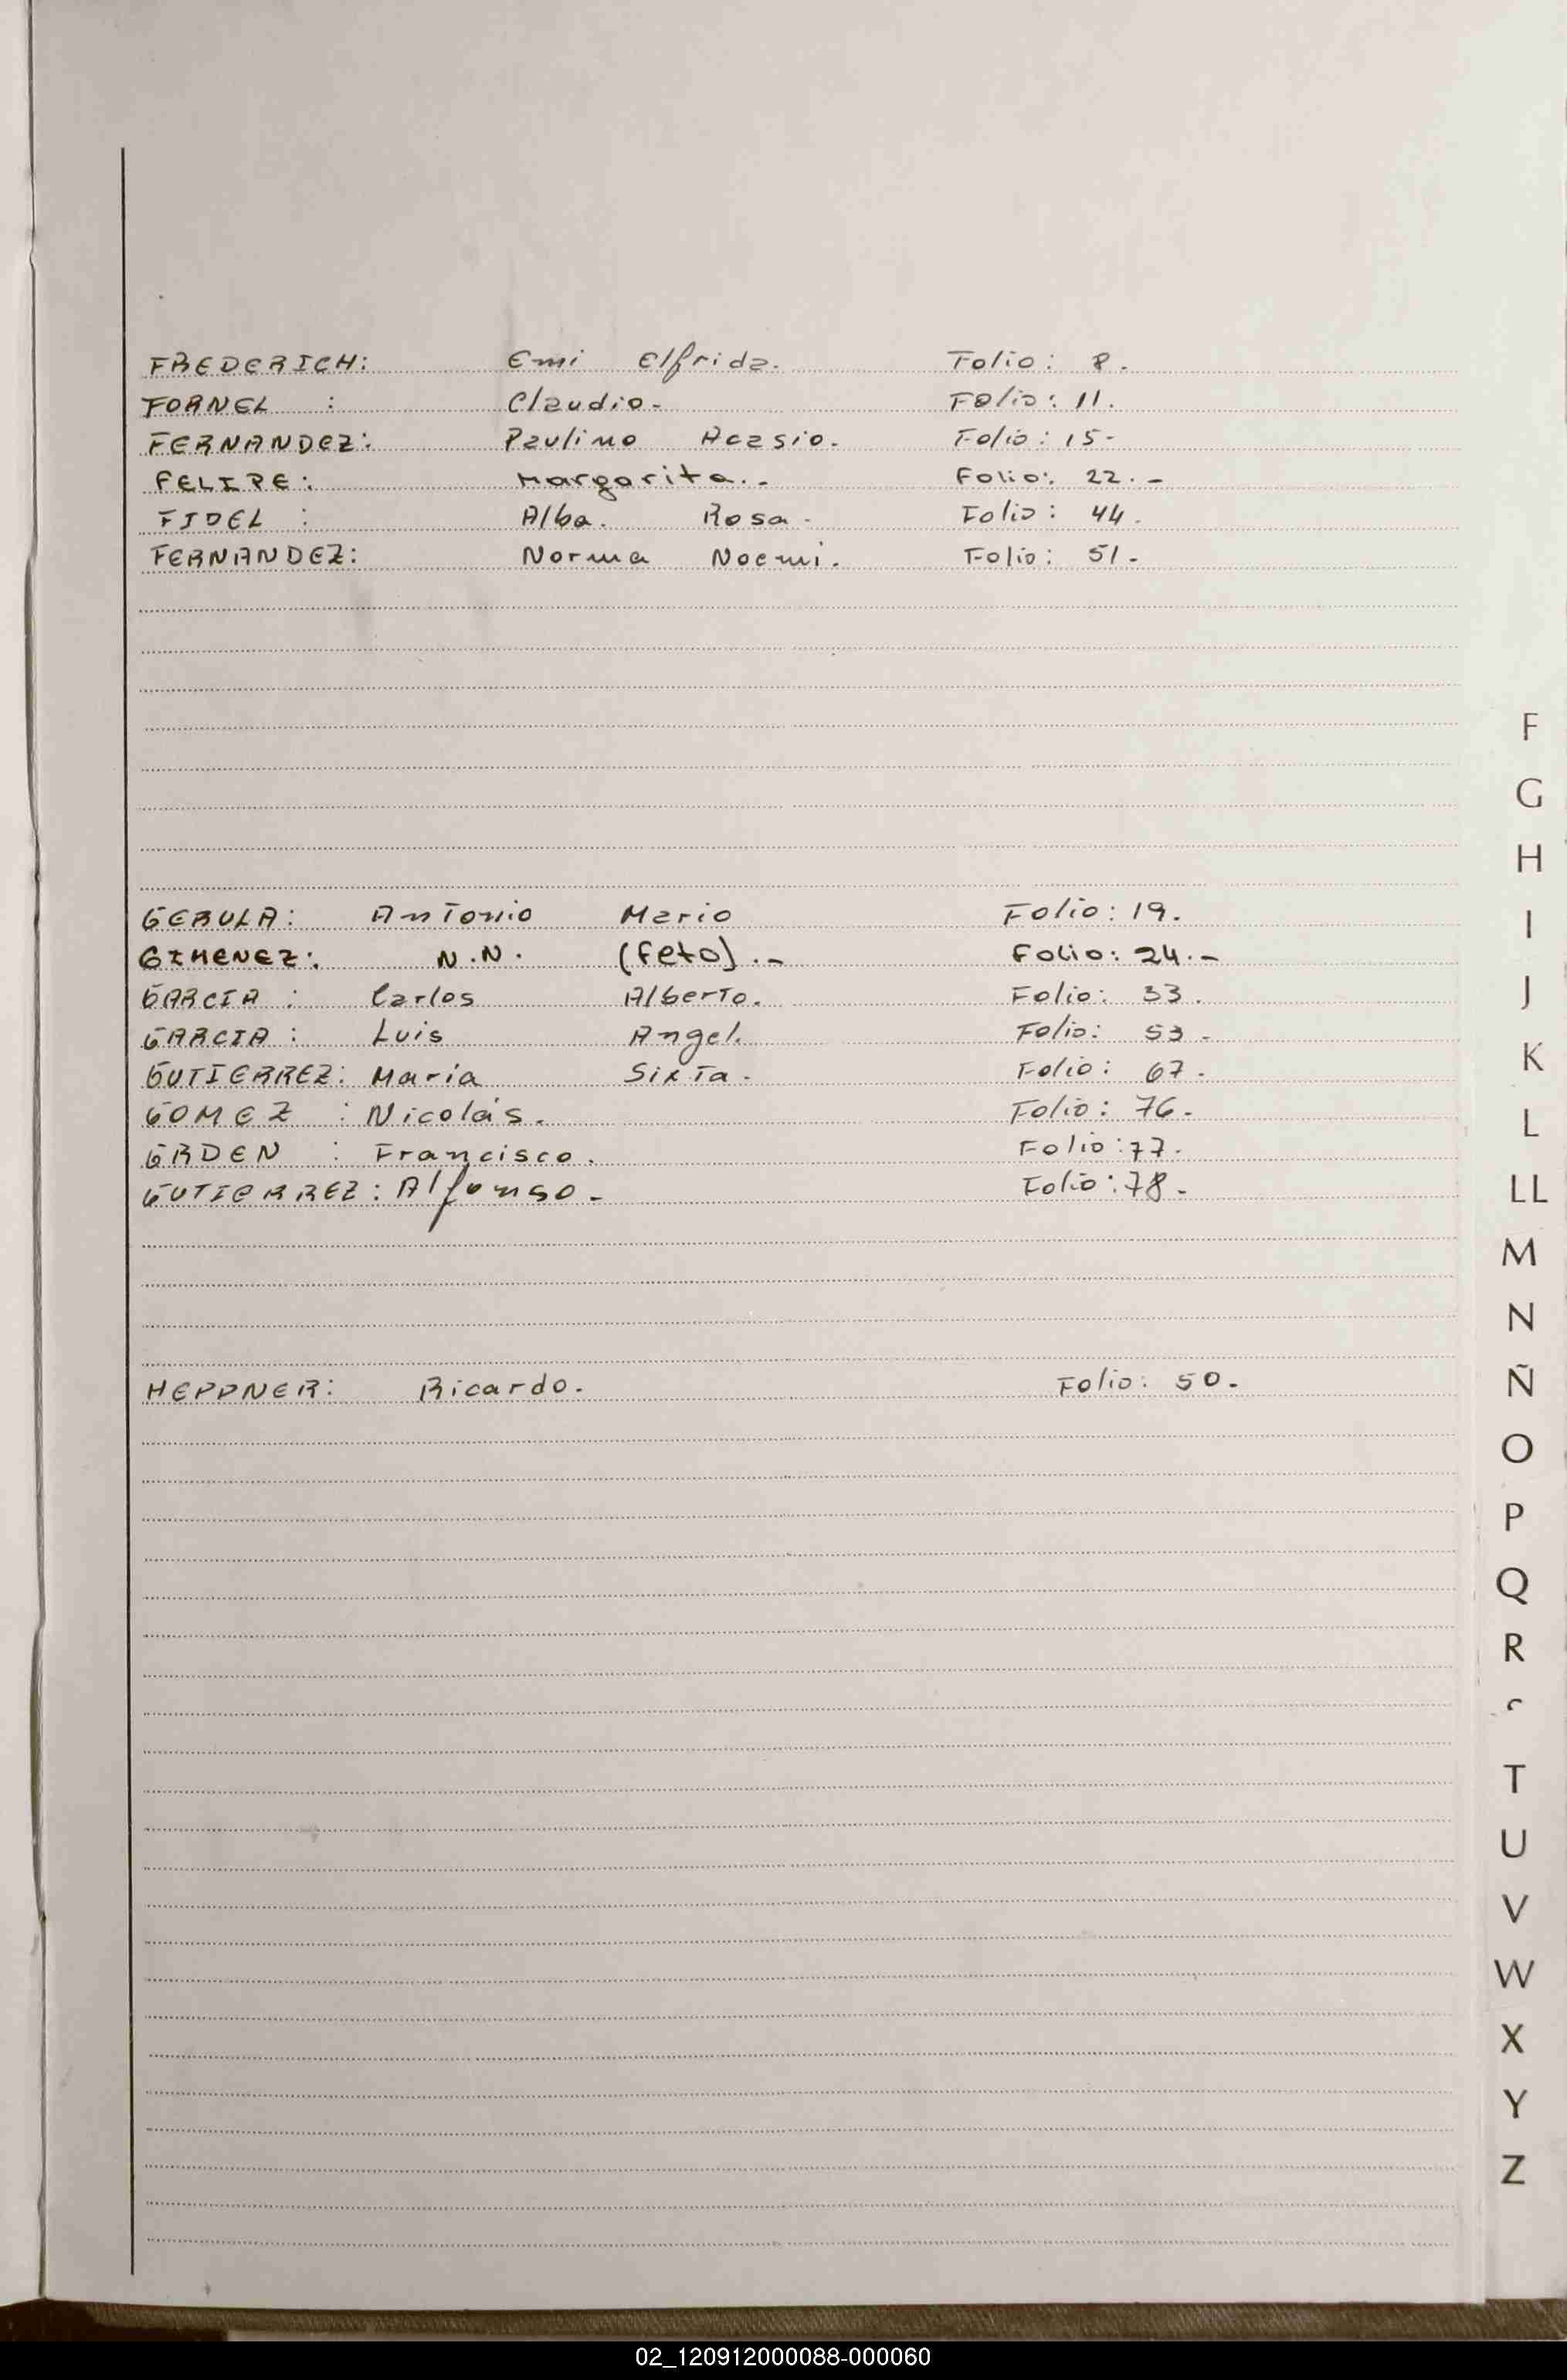 FREDERICH: Emi Elfrida. Folio: 8.
FORNEL : Claudio. Folio: 11.
FERNANDEZ: Paulino Acasio. Folio: 15-
FELIPE: Margarita.- Folio: 22.-
FIDEL : Alba. Rosa. Folio: 44.
FERNANDEZ: Norma Noemi. Folio: 51.
GERULA: Antonio Mario Folio: 19.
GIMENEZ: N.N. (feto).- Folio: 24.-
GARCIA : Carlos Alberto. Folio: 33.
GARCIA : Luis Angel. Folio: 53.
GUTIERREZ: Maria Sixta. Folio: 67.
GOMEZ : Nicolás. Folio: 76.
GRDEN : Francisco. Folio: 77.
GUTIERREZ: Alfonso. Folio: 78.
HEPPNER: Ricardo. Folio: 50.
F
G
H
I
J
K
L
LL
M
N
Ñ
O
P
Q
R
T
U
V
W
X
Y
Z
02_120912000088-000060